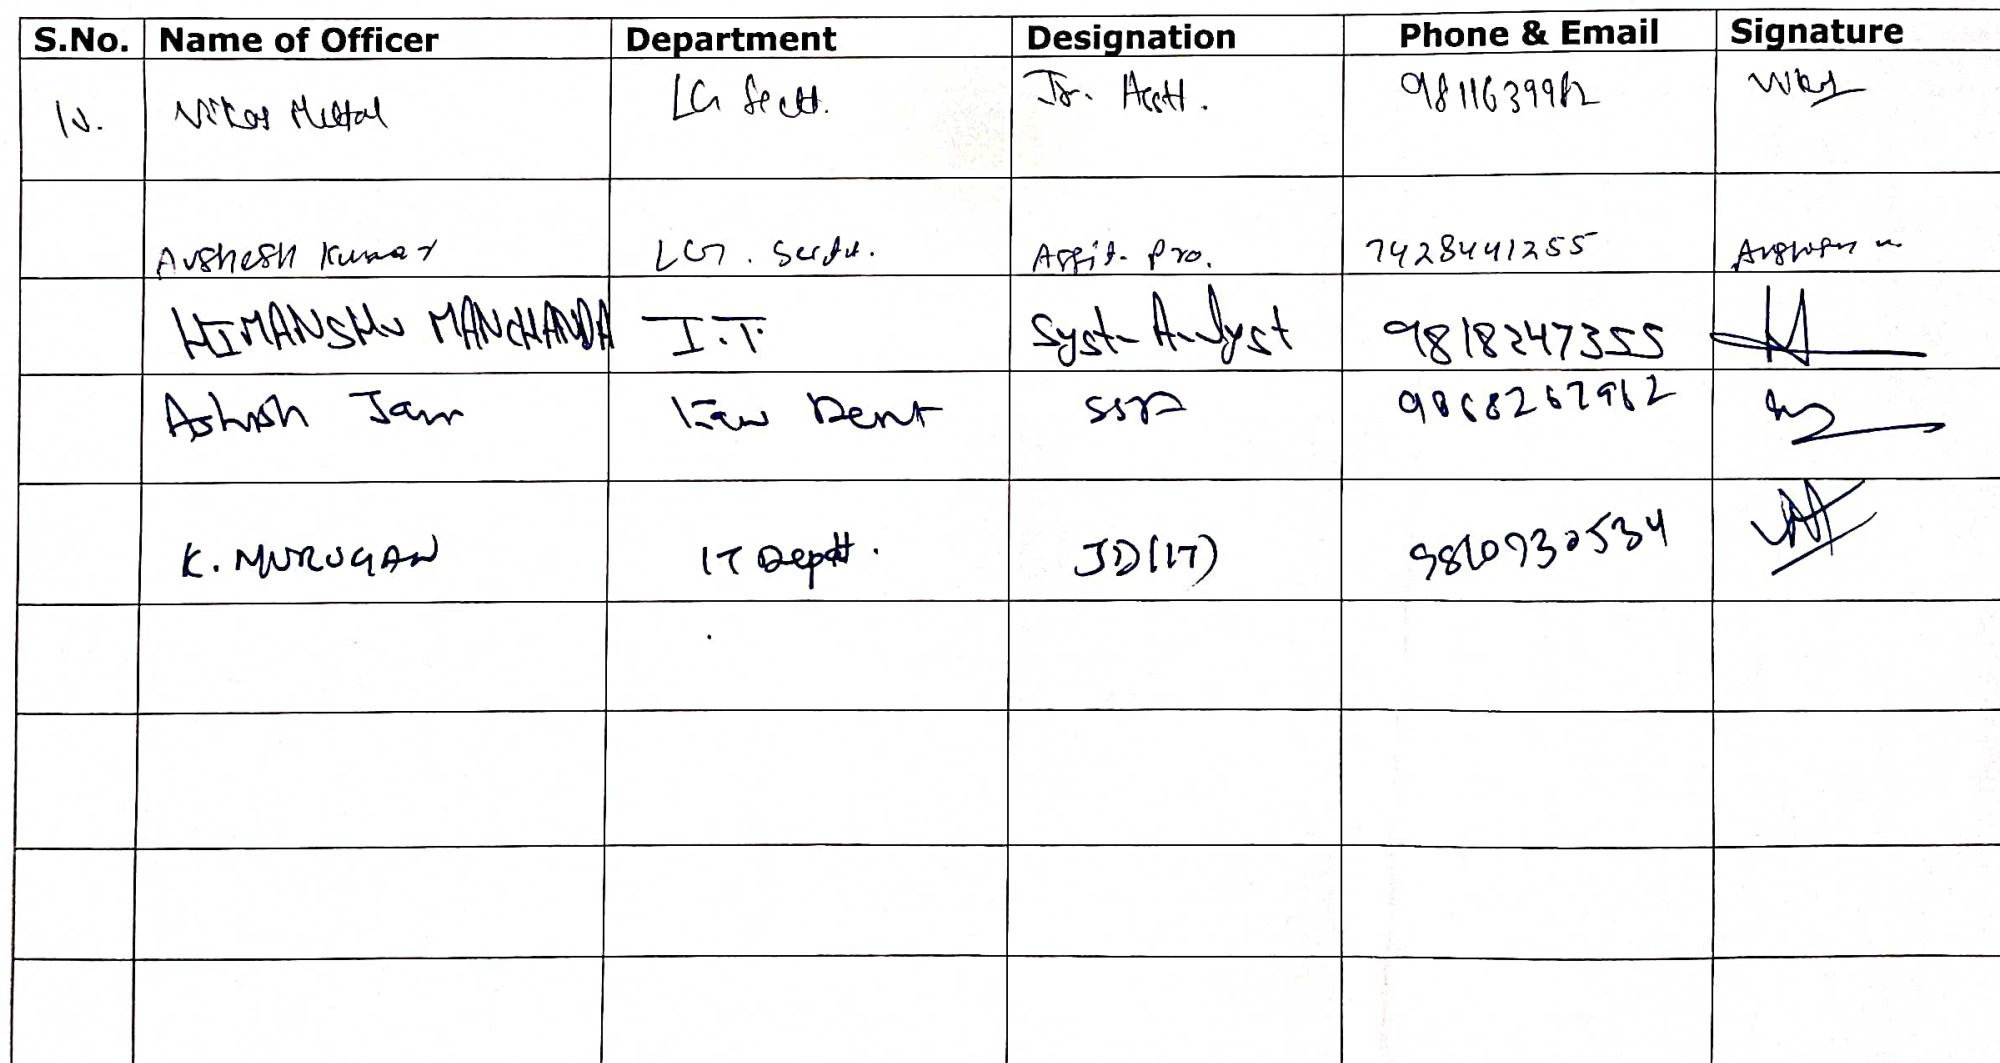 S.No. Name of Officer Department Designation Phone & Email Signature
10. Vikas Mittal LG Sectt. Jr. Asstt. 9811639982
Avshesh Kumar LG. Sectt. Assit. Pro. 7428441255
HIMANSHU MANCHANDA I.T. Syst. Analyst 9818247355
Ashish Jain Law Dept SSA
K. MURUGAN IT Deptt. JD(IT) 9810730534